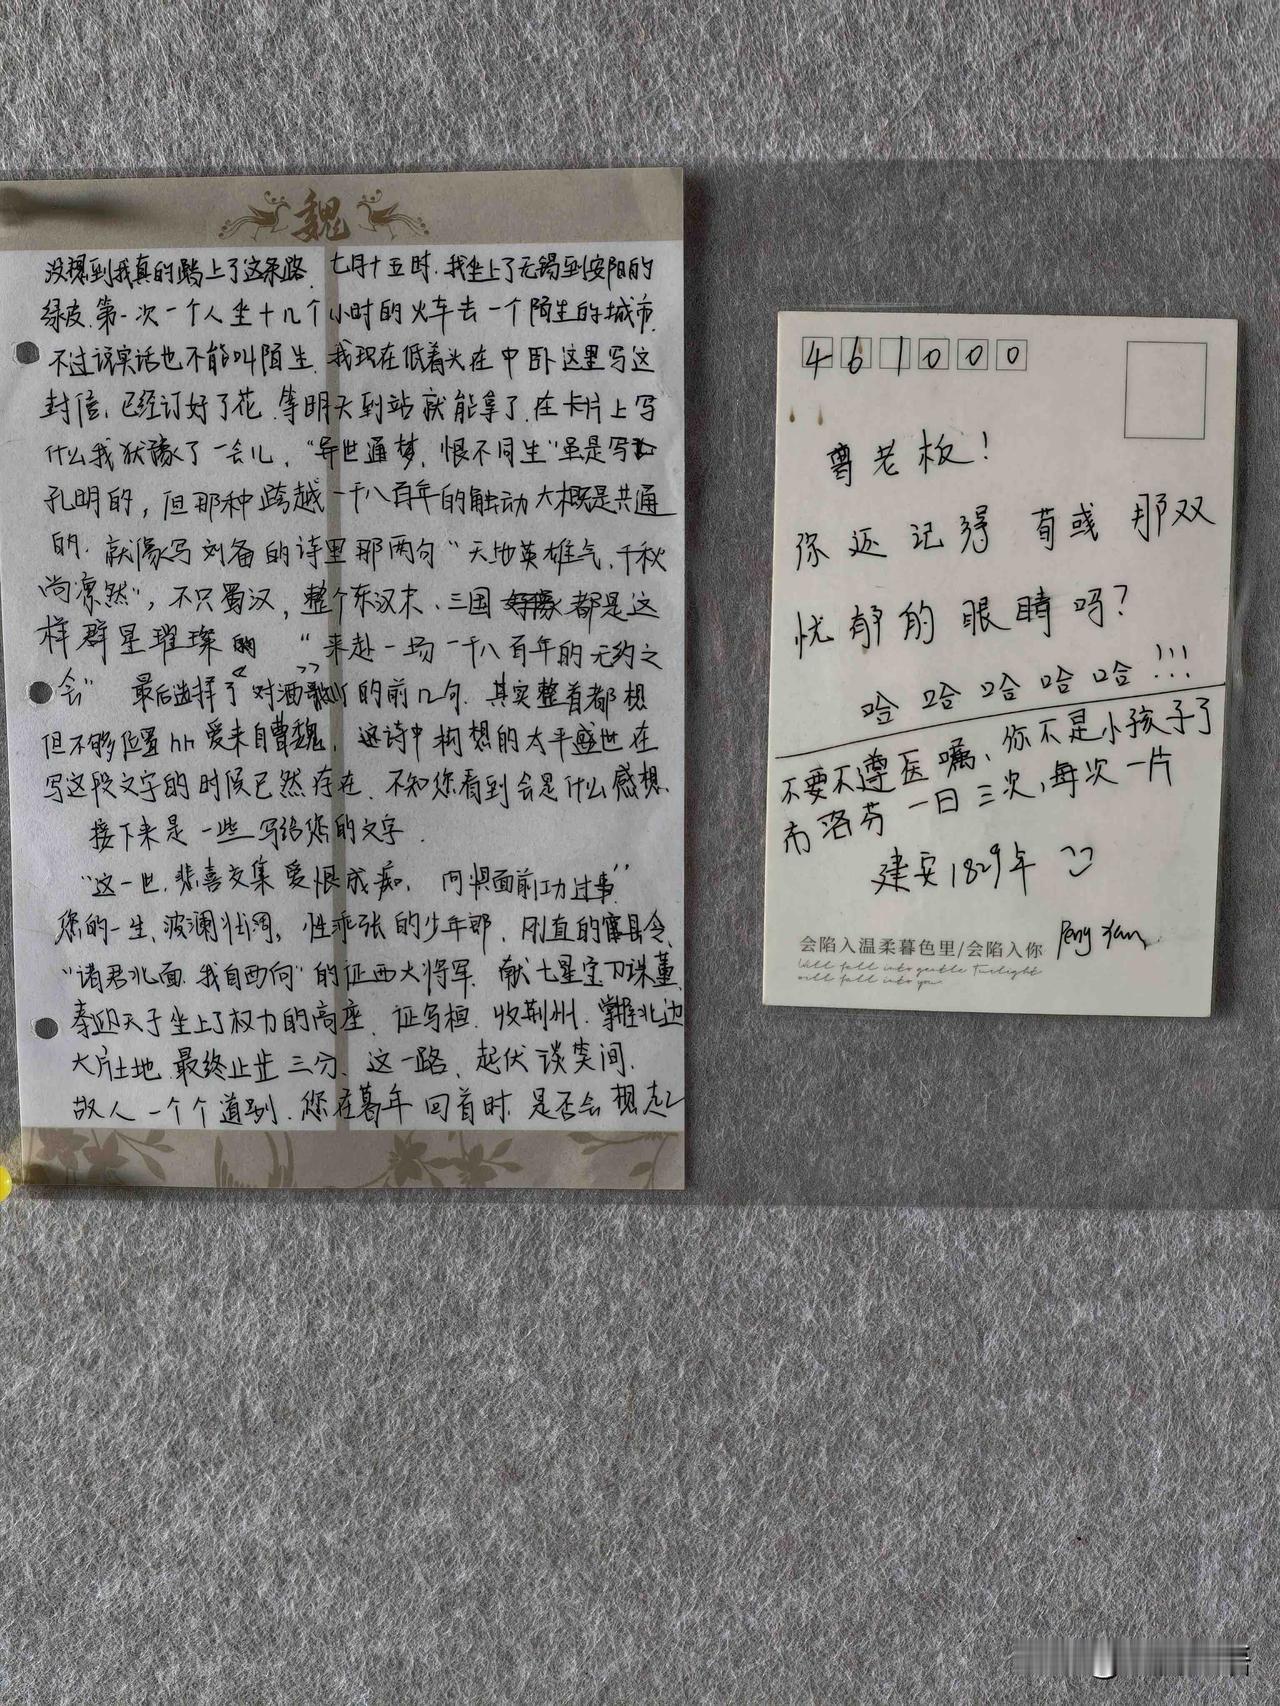 魏
没想到我真的踏上了这条路.七月十五时.我坐上了无锡到安阳的
绿皮.第一次一个人坐十几个小时的火车去一个陌生的城市.
不过说实话也不能叫陌生.我现在低着头在中卧这里写这
封信,已经订好了花.等明天到站就能拿了.在卡片上写
什么我犹豫了一会儿,"异世通梦,恨不同生"虽是写
孔明的,但那种跨越一千八百年的触动大概是共通
的.就像写刘备的诗里那两句"天地英雄气,千秋
尚凛然",不只蜀汉,整个东汉末、三国 都是这
样群星璀璨的 "来赴一场一千八百年的无约之
会" 最后选择了"对酒歌"的前几句.其实整首都想
但不够位置hh 爱来自曹魏,这诗中构想的太平盛世在
写这段文字的时候已然存在.不知您看到会是什么感想.
接下来是一些写给您的文字.
"这一世,悲喜交集 爱恨成痴, 何惧面前功过事"
您的一生,波澜壮阔,性乖张的少年郎,刚直的 县令,
"诸君北面.我自西向"的征西大将军.献七星宝刀 董,
奉迎天子坐上了权力的高座.征乌桓.收荆州.掌握北边
大片土地.最终止步三分.这一路,起伏谈笑间.
故人一个个道别.您在暮年回首时.是否会想起
461000
曹老板!
你还记得荀彧那双
忧郁的眼睛吗?
哈哈哈哈哈!!!
不要不遵医嘱、你不是小孩子了
布洛芬一日三次,每次一片
建安1829年
会陷入温柔暮色里/会陷入你
Will fall into gentle Twilight
will fall into you